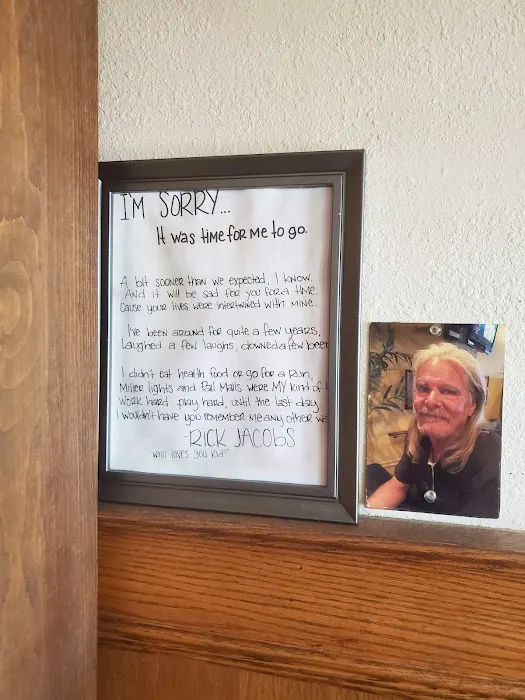 I'M SORRY...
It was time for me to go.
A bit sooner than we expected, I know.
And it will be sad for you for a time.
Cause your lives were intertwined with mine.
I've been around for quite a few years,
Laughed a few laughs, downed a few beer
I didn't eat health food or go for a Run,
Miller lights and Pall Malls were MY kind of
Work hard play hard, until the last day
I wouldn't have you remember me any other
-RICK JACOBS
"who loves you kid?"